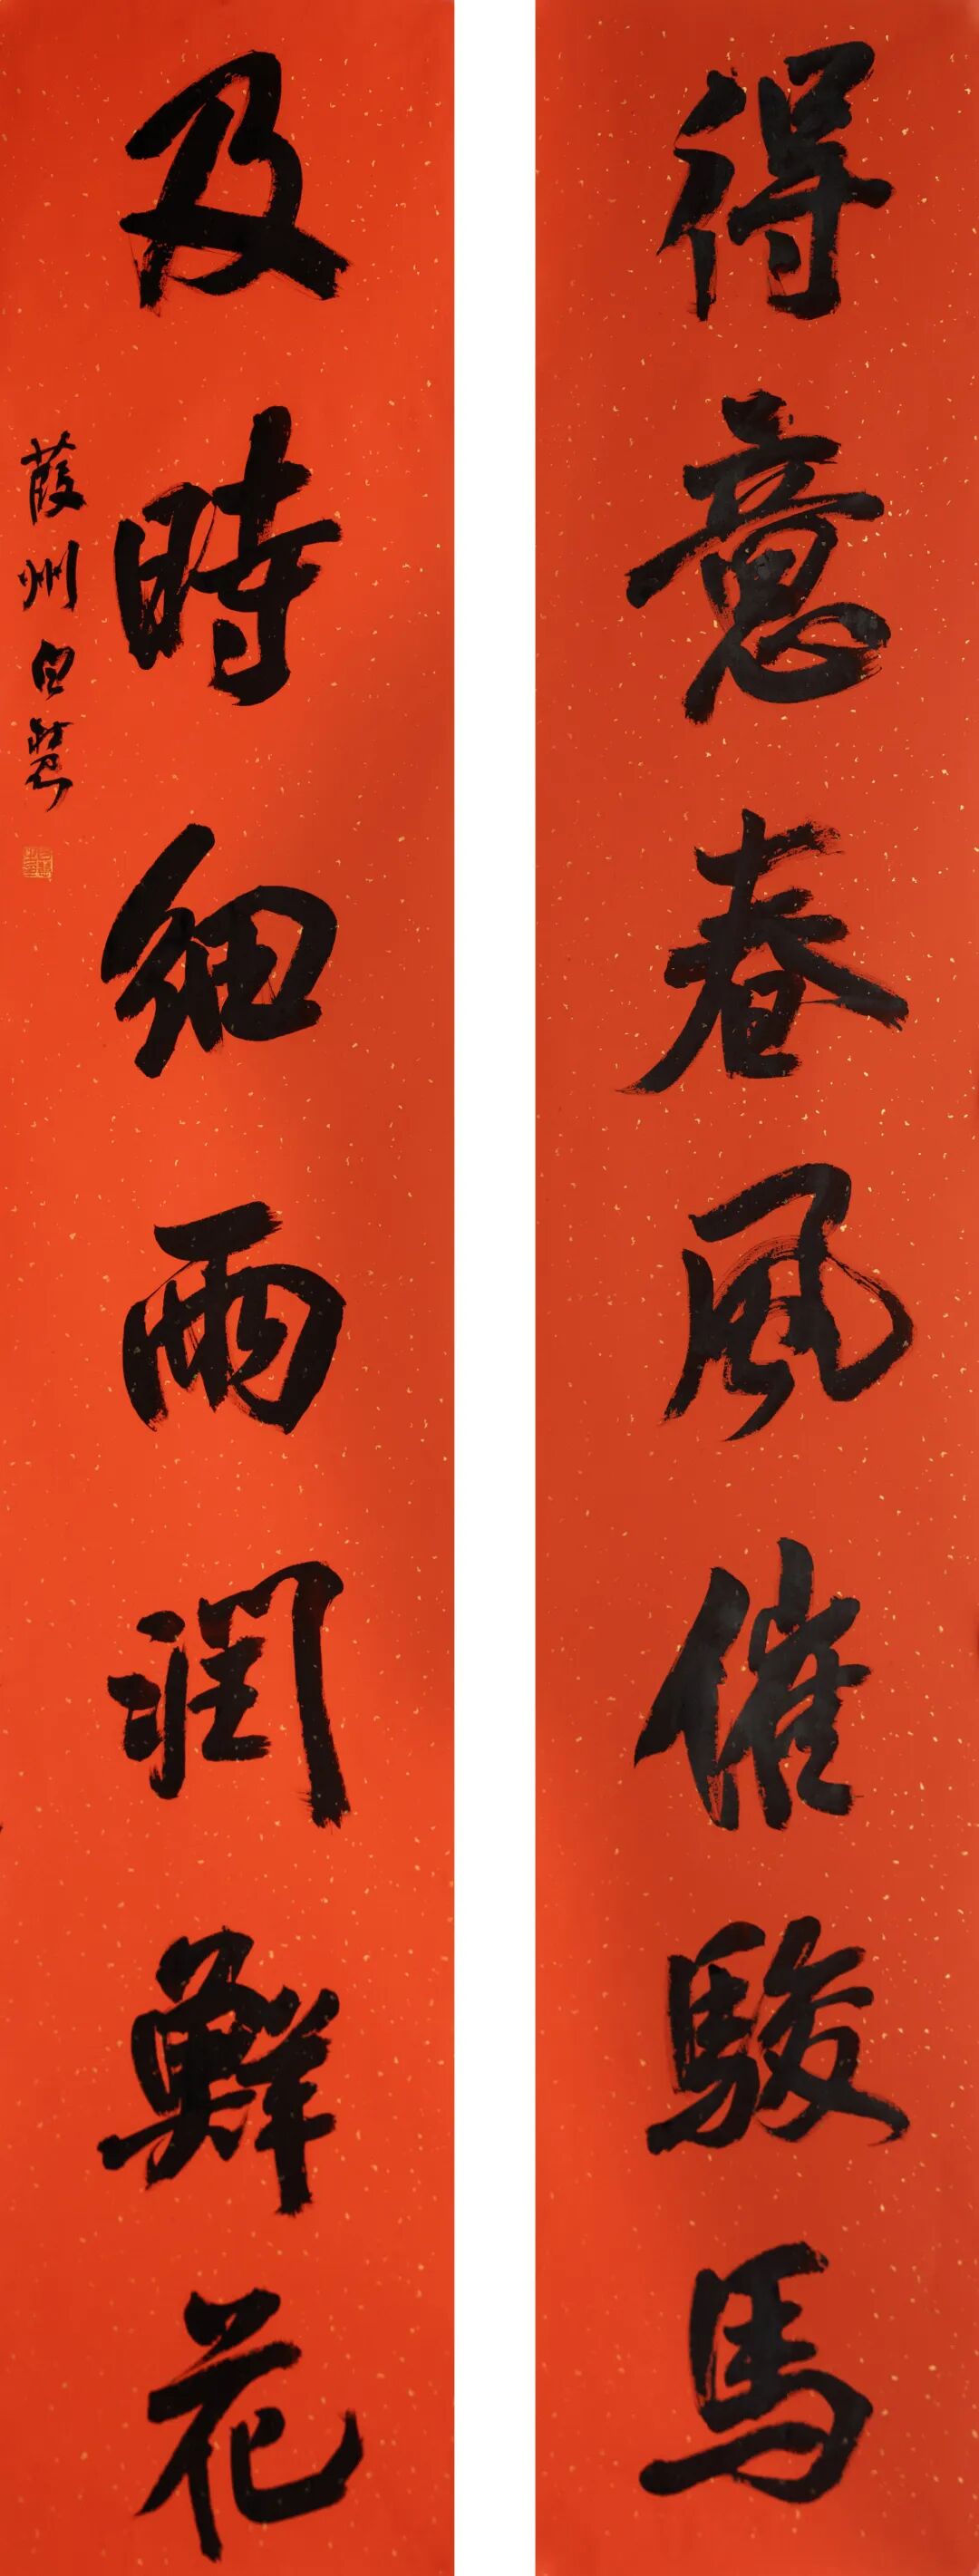 得意春風催駿馬
及時細雨潤鮮花
葭州白慧